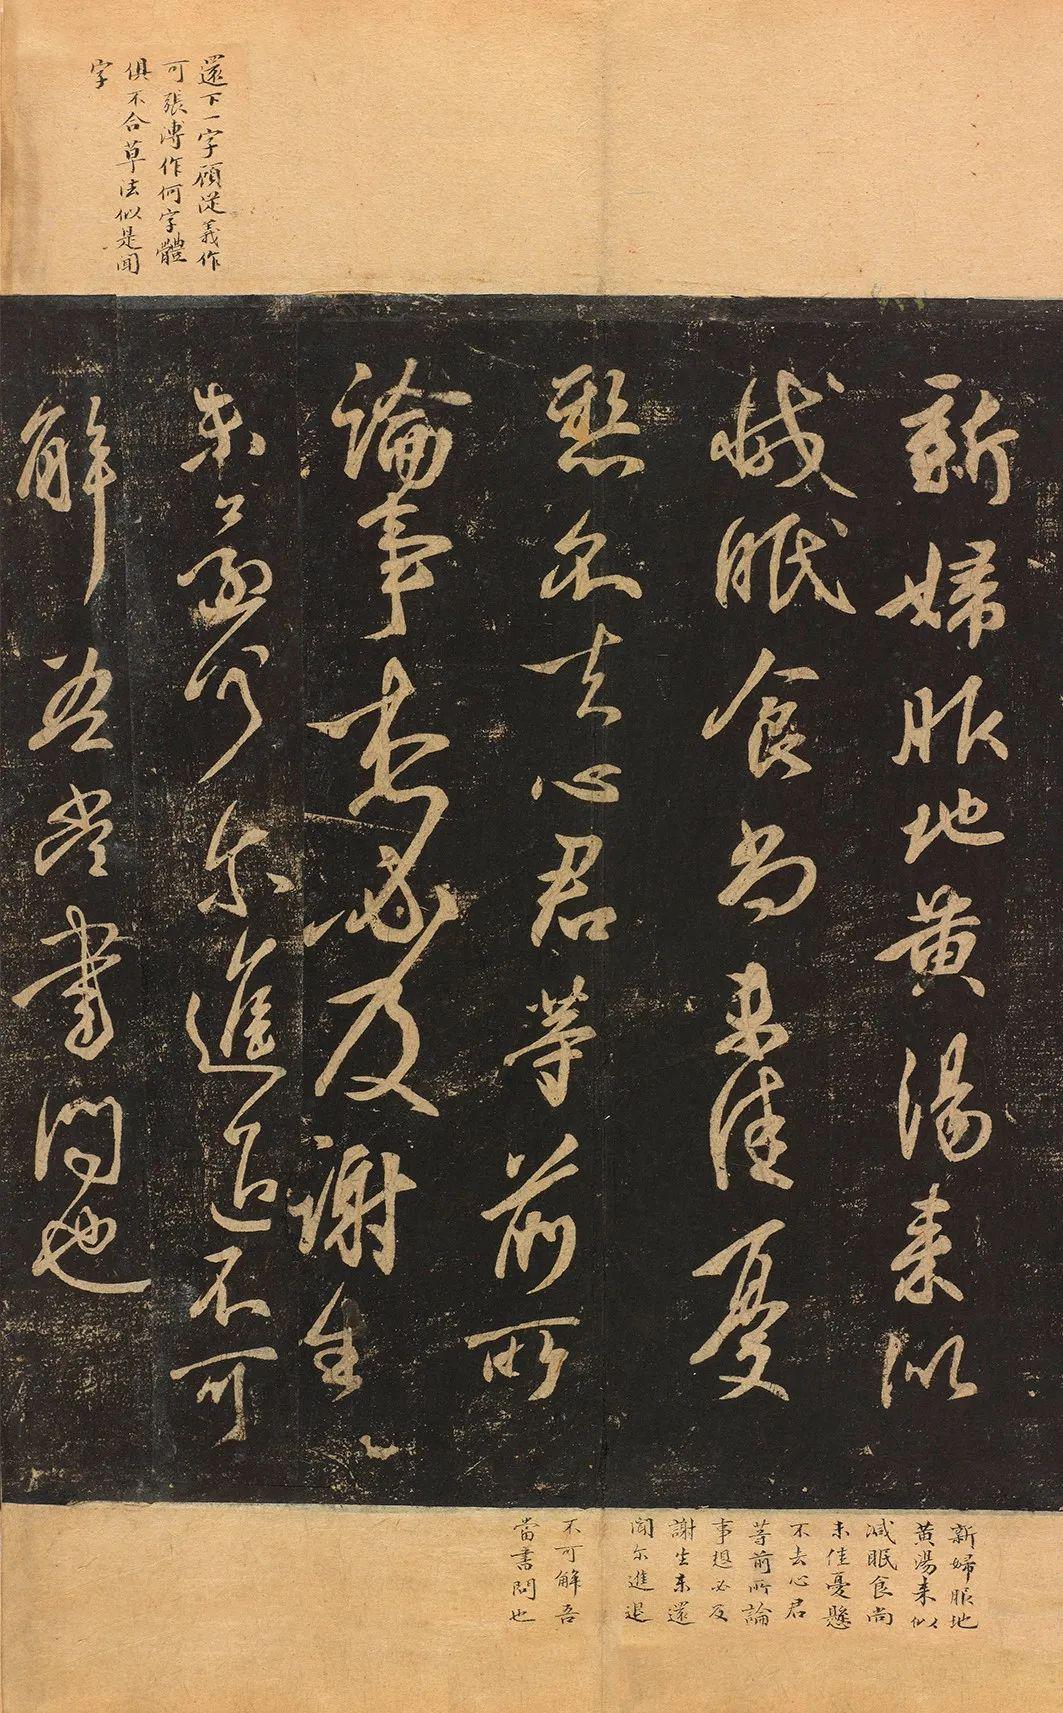 還下一字顧從義作
可張溥作何字體
俱不合草法似是聞
字
新婦服地黄湯来似
減眠食尚未佳憂
懸不去心君等前所
論事想必及謝生
未還何尔進退不可
解吾當書問也
新婦服地
黄湯来似
减眠食尚
未佳憂懸
不去心君
等前所論
事想必及
謝生未還
聞尔進退
不可解吾
當書問也